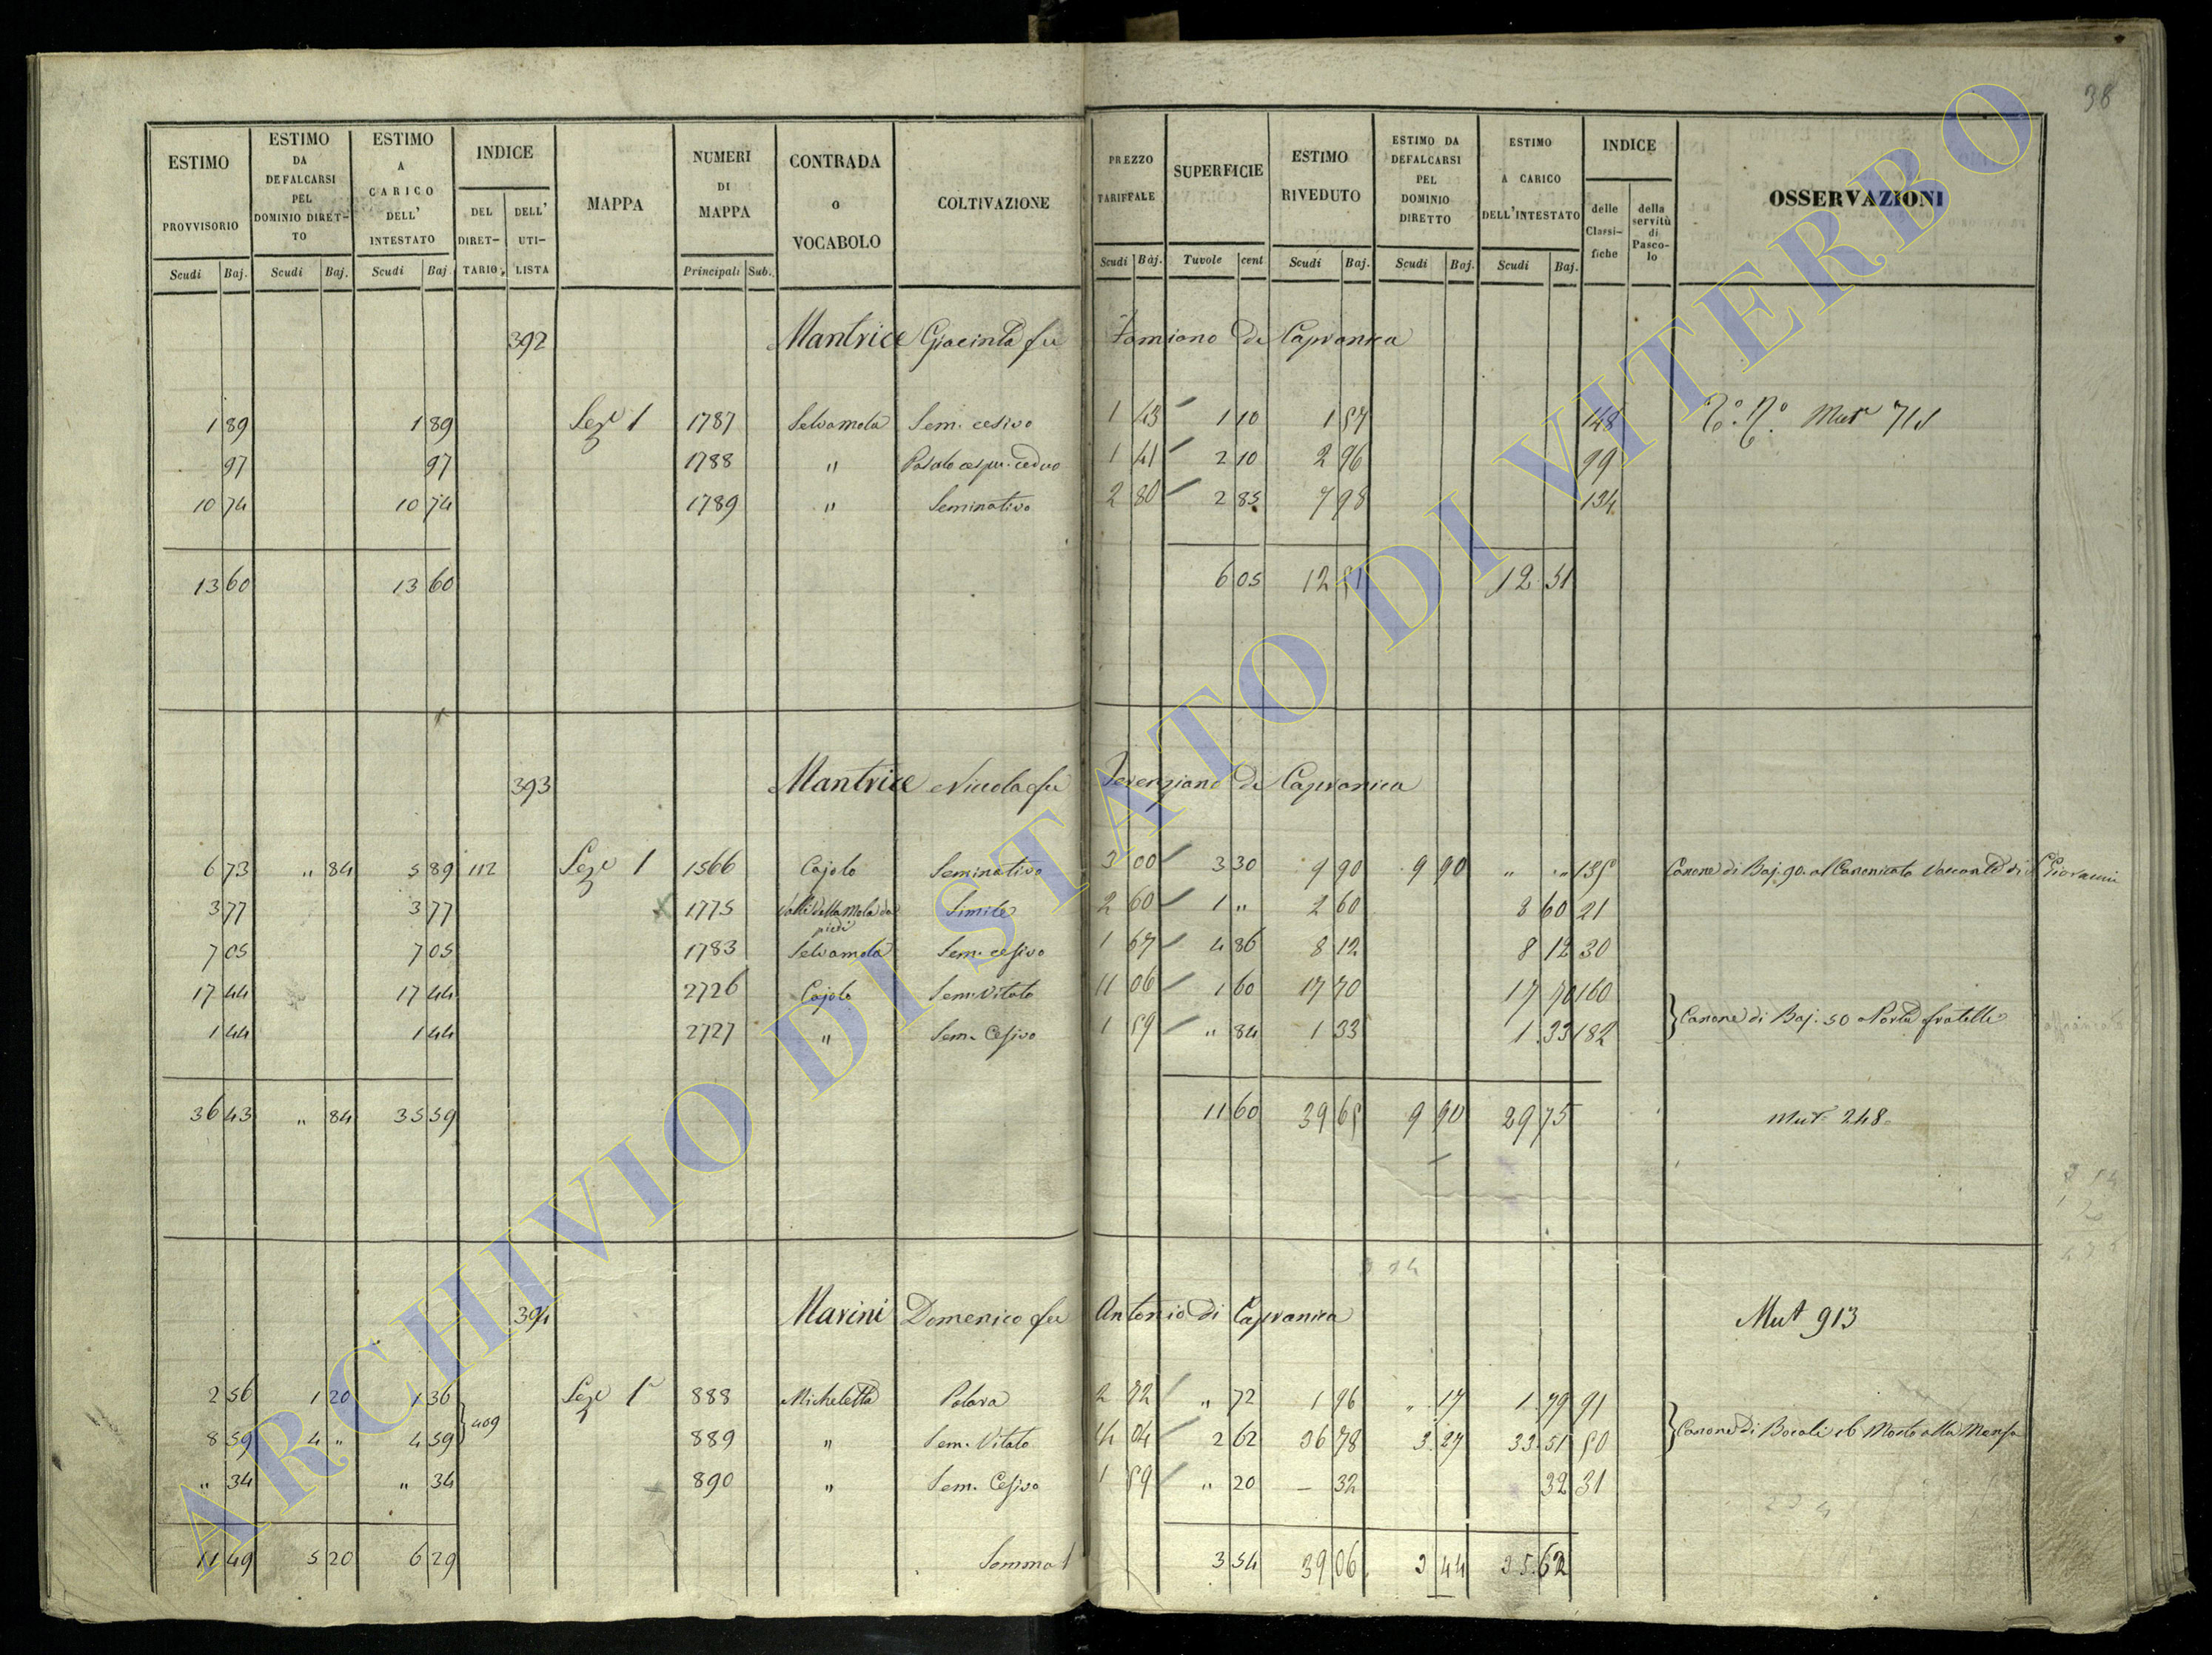 38
ESTIMO PROVVISORIO Scudi Baj. | ESTIMO DA DEFALCARSI PEL DOMINIO DIRETTO Scudi Baj. | ESTIMO A CARICO DELL' INTESTATO Scudi Baj. | INDICE DEL DIRETTARIO, DELL' UTILISTA | MAPPA | NUMERI DI MAPPA Principali Sub. | CONTRADA o VOCABOLO | COLTIVAZIONE | PREZZO TARIFFALE Scudi Baj. | SUPERFICIE Tavole cent | ESTIMO RIVEDUTO Scudi Baj. | ESTIMO DA DEFALCARSI PEL DOMINIO DIRETTO Scudi Baj. | ESTIMO A CARICO DELL'INTESTATO Scudi Baj. | INDICE delle Classifiche della servitù di Pascolo | OSSERVAZIONI
392 Mantrice Giacinta fu Damiano di Capranica
1 89 1 89 Seze 1 1787 Selvamola Sem. cesivo 1 43 1 10 1 57 148 Mutr 711
97 97 1788 " Pascolo cespu. ceduo 1 41 2 10 2 96 99
10 74 10 74 1789 " Seminativo 2 80 2 85 7 98 134
13 60 13 60 6 05 12 51 12 51
393 Mantrice Nicola fu Terenziano di Capranica
6 73 " 84 5 89 112 Seze 1 1566 Cajolo Seminativo 3 00 3 30 9 90 9 90 " " 135 Canone di Baj. 90 al Canonicato Vacante di S Giovanni
3 77 3 77 1775 Valli della Mola da piedi Simile 2 60 1 " 2 60 2 60 21
7 05 7 05 1783 Selvamola Sem. cesivo 1 67 4 86 8 12 8 12 30
17 44 17 44 2726 Cajolo Sem. Vitato 11 06 1 60 17 70 17 70 160
1 44 1 44 2727 " Sem. Cesivo 1 59 " 84 1 33 1 33 182 Canone di Baj. 50 a Porta fratelli
36 43 " 84 35 59 11 60 39 65 9 90 29 75 Mutr 248
394 Marini Domenico fu Antonio di Capranica Mut 913
2 56 1 20 1 36 409 Seze 1 888 Micheletta Polara 2 72 " 72 1 96 " 17 1 79 91
8 59 4 " 4 59 889 " Sem. Vitato 14 04 2 62 36 78 3 27 33 51 50 Canone di Bocali 16 Mosto alla Mensa
" 34 " 34 890 " Sem. Cesivo 1 59 " 20 – 32 32 31
11 49 5 20 6 29 Somma 3 54 39 06 3 44 35 62
ARCHIVIO DI STATO DI VITERBO